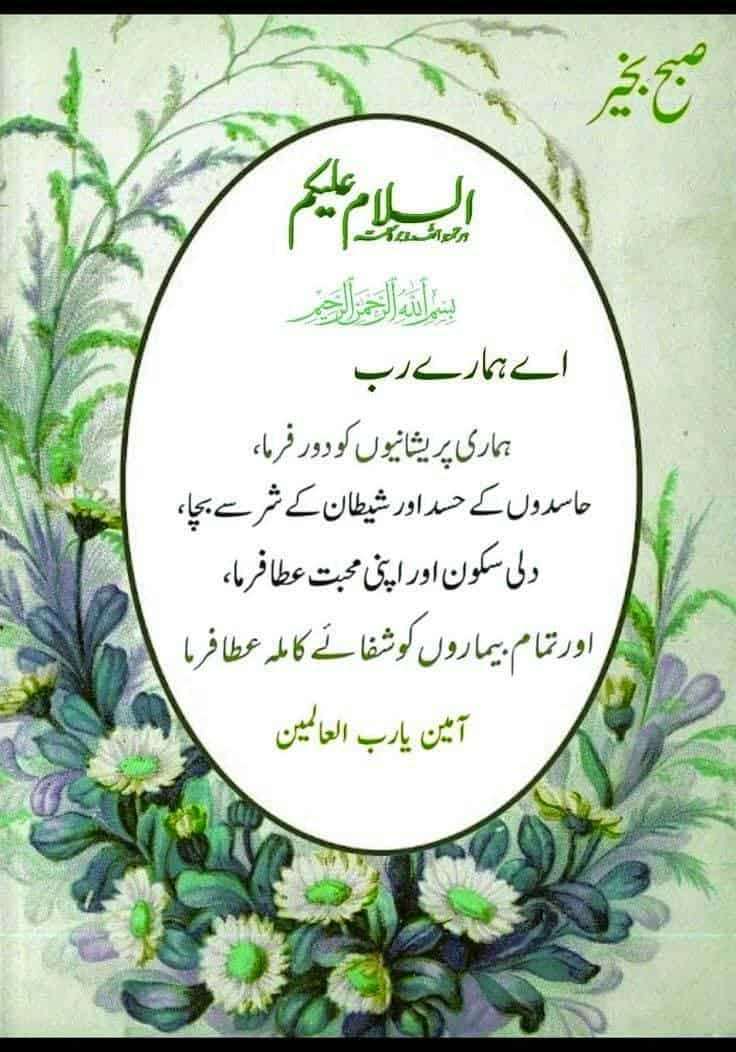 صبح بخیر
السلام علیکم
ورحمۃ اللہ وبرکاتہ
بِسْمِ اللهِ الرَّحْمٰنِ الرَّحِيْمِ
اے ہمارے رب
ہماری پریشانیوں کو دور فرما،
حاسدوں کے حسد اور شیطان کے شر سے بچا،
دلی سکون اور اپنی محبت عطا فرما،
اور تمام بیماروں کو شفائے کاملہ عطا فرما
آمین یا رب العالمین